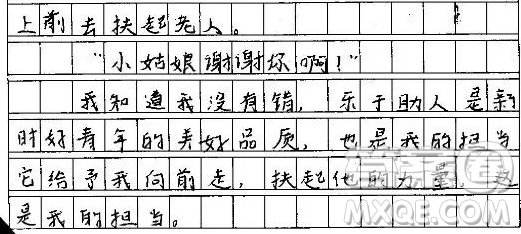 上前去扶起老人。
“小姑娘谢谢你啊！”
我知道我没有错，乐于助人是新
时好青年的美好品质，也是我的担当
它给予我向前走，扶起他的力量，这
是我的担当。
MXQE.COM